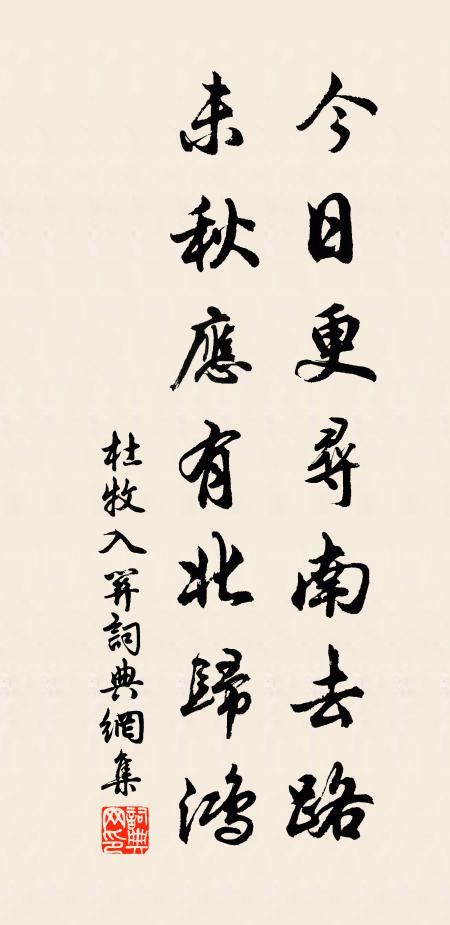 今日更尋南去路
未秋應有北歸鴻
杜牧入關詞典網集
詞典网印